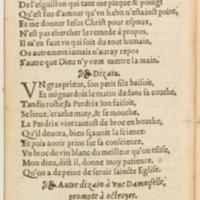 De l'esguillon qui tant me picque & poingt
Qu'est feu d'amour qu'en habit n'estainct point,
Et me donner Jesus Christ pour espoux,
N'est pas chercher le remede à propos,
Il m'en faut vn qui soit du tout humain,
Ou autrement iamais n'auray repos
S'autre que Dieu n'y veut mettre la main.
Dizain.
VN gras prieur, son petit filz baisoit,
Et mignardoit le matin dedans sa couche,
Tandis rostir sa Perdrix lon faisoit,
Se lieue, crache, moty, & se mouche,
La Perdrix vint tantost de broc en bouche,
Qu'il deuora, bien sçauoit la science:
Et puis auoir prins sur sa conscience,
Vn broc de vin blanc du meilleur qu'on eslise,
Mon dieu, dict il, donne moy patience,
Qu'on a de peine de seruir saincte Eglise.
Autre dizain à vne Damoyselle,
prompte à octroyer.